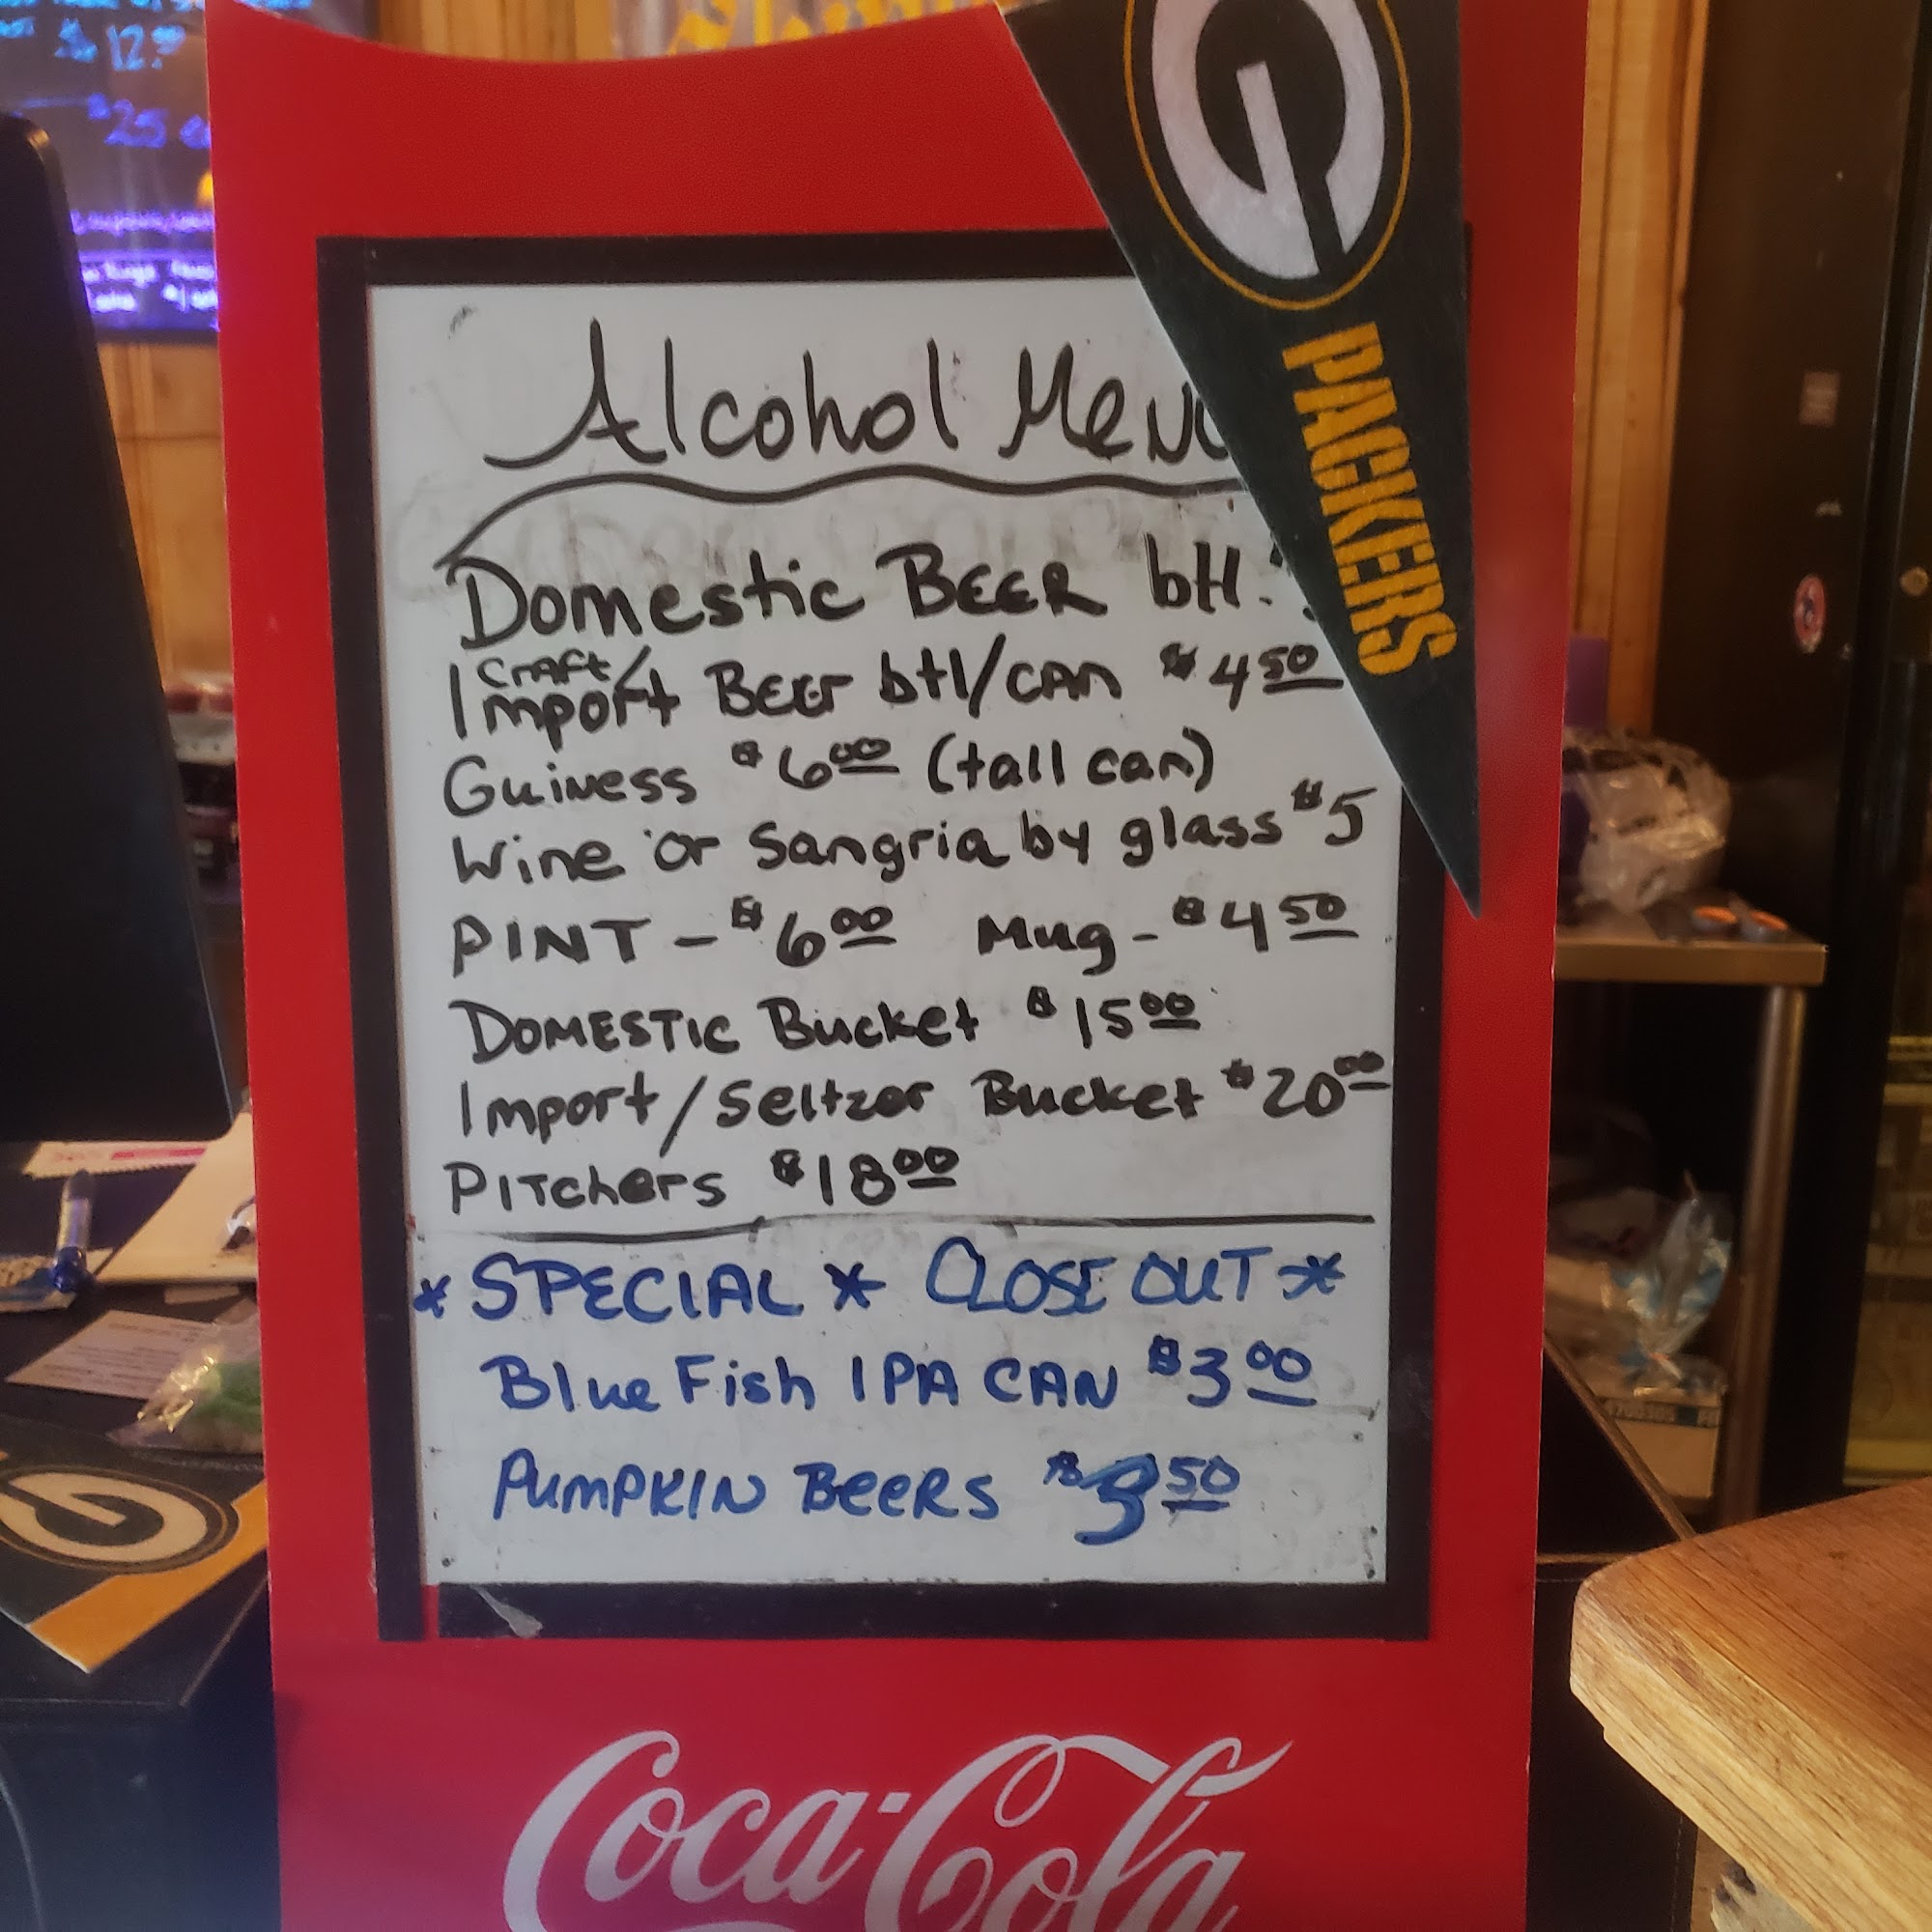 $12.00
$25
G
PACKERS
Alcohol Menu
Domestic BEER btl.
Craft/
Import Beer btl/can $4.50
Guiness $6.00 (tall can)
Wine or Sangria by glass $5
PINT - $6.00 Mug - $4.50
DOMESTIC Bucket $15.00
Import/Seltzer Bucket $20.00
Pitchers $18.00
* SPECIAL * CLOSE OUT *
Blue Fish IPA CAN $3.00
PUMPKIN BEERS $3.50
G
Coca-Cola